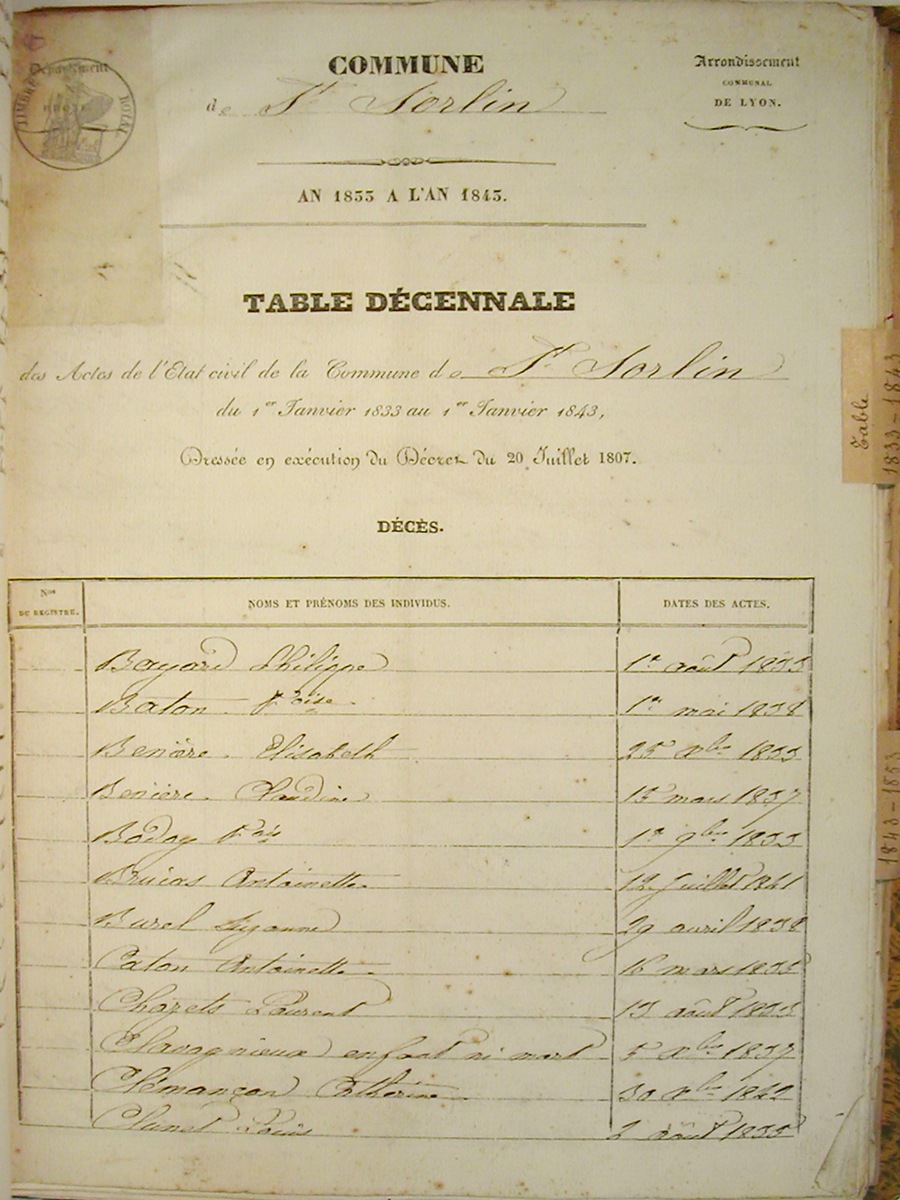 Département
TIMBRE ROYAL
COMMUNE
de St Sorlin
Arrondissement
COMMUNAL
DE LYON.
AN 1833 A L'AN 1843.
TABLE DÉCENNALE
des Actes de l'Etat civil de la Commune de St Sorlin
du 1er Janvier 1833 au 1er Janvier 1843,
Dressée en exécution du Décret du 20 Juillet 1807.
DÉCÈS.
Nos DU REGISTRE. NOMS ET PRÉNOMS DES INDIVIDUS. DATES DES ACTES.
Bayard Philippe 1er août 1833
Baton foise 1er mai 1838
Benière Elisabeth 25 xbre 1833
Benière Claudine 15 mars 1837
Boday fois 1er 9bre 1833
Antoinette 12 juillet 1841
Burel Suzanne 29 avril 1838
Caton Antoinette 16 mars 1835
Chazets Laurent 13 août 1833
Clavagnieux enfant ni mort 5 xbre 1837
Clémançon Catherine 30 xbre 1842
Clunet Louis 2 août 1835
Table
1833-1843
1843-1853